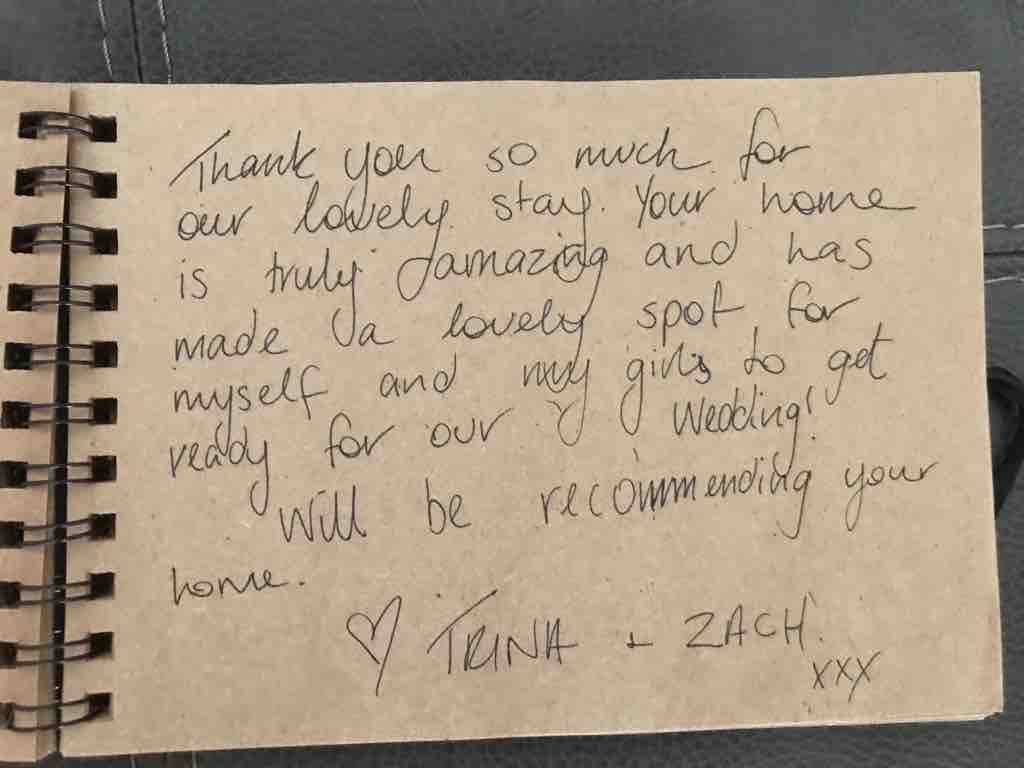 Thank you so much for
our lovely stay. Your home
is truly amazing and has
made a lovely spot for
myself and my girls to get
ready for our wedding!
Will be recommending your
home.
♡ TRINA + ZACH.
xxx